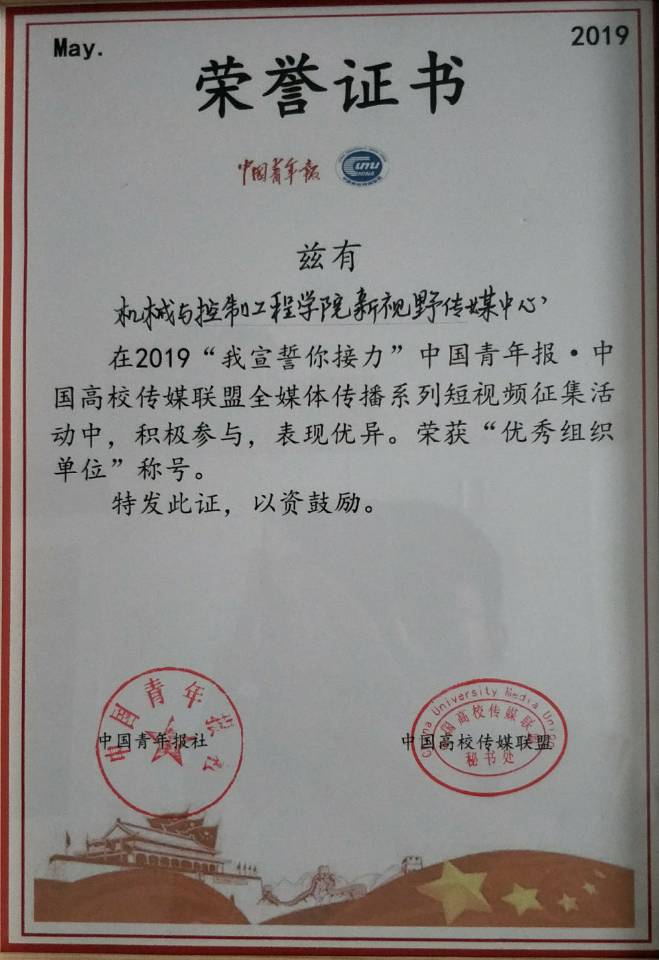 May.
2019
荣誉证书
中国青年报
CUMU
CHINA
兹有
机械与控制工程学院新视野传媒中心，
在2019“我宣誓你接力”中国青年报·中
国高校传媒联盟全媒体传播系列短视频征集活
动中，积极参与，表现优异。荣获“优秀组织
单位”称号。
特发此证，以资鼓励。
中国青年报社
中国青年报社
China University Media Union
中国高校传媒联盟
秘书处
中国高校传媒联盟